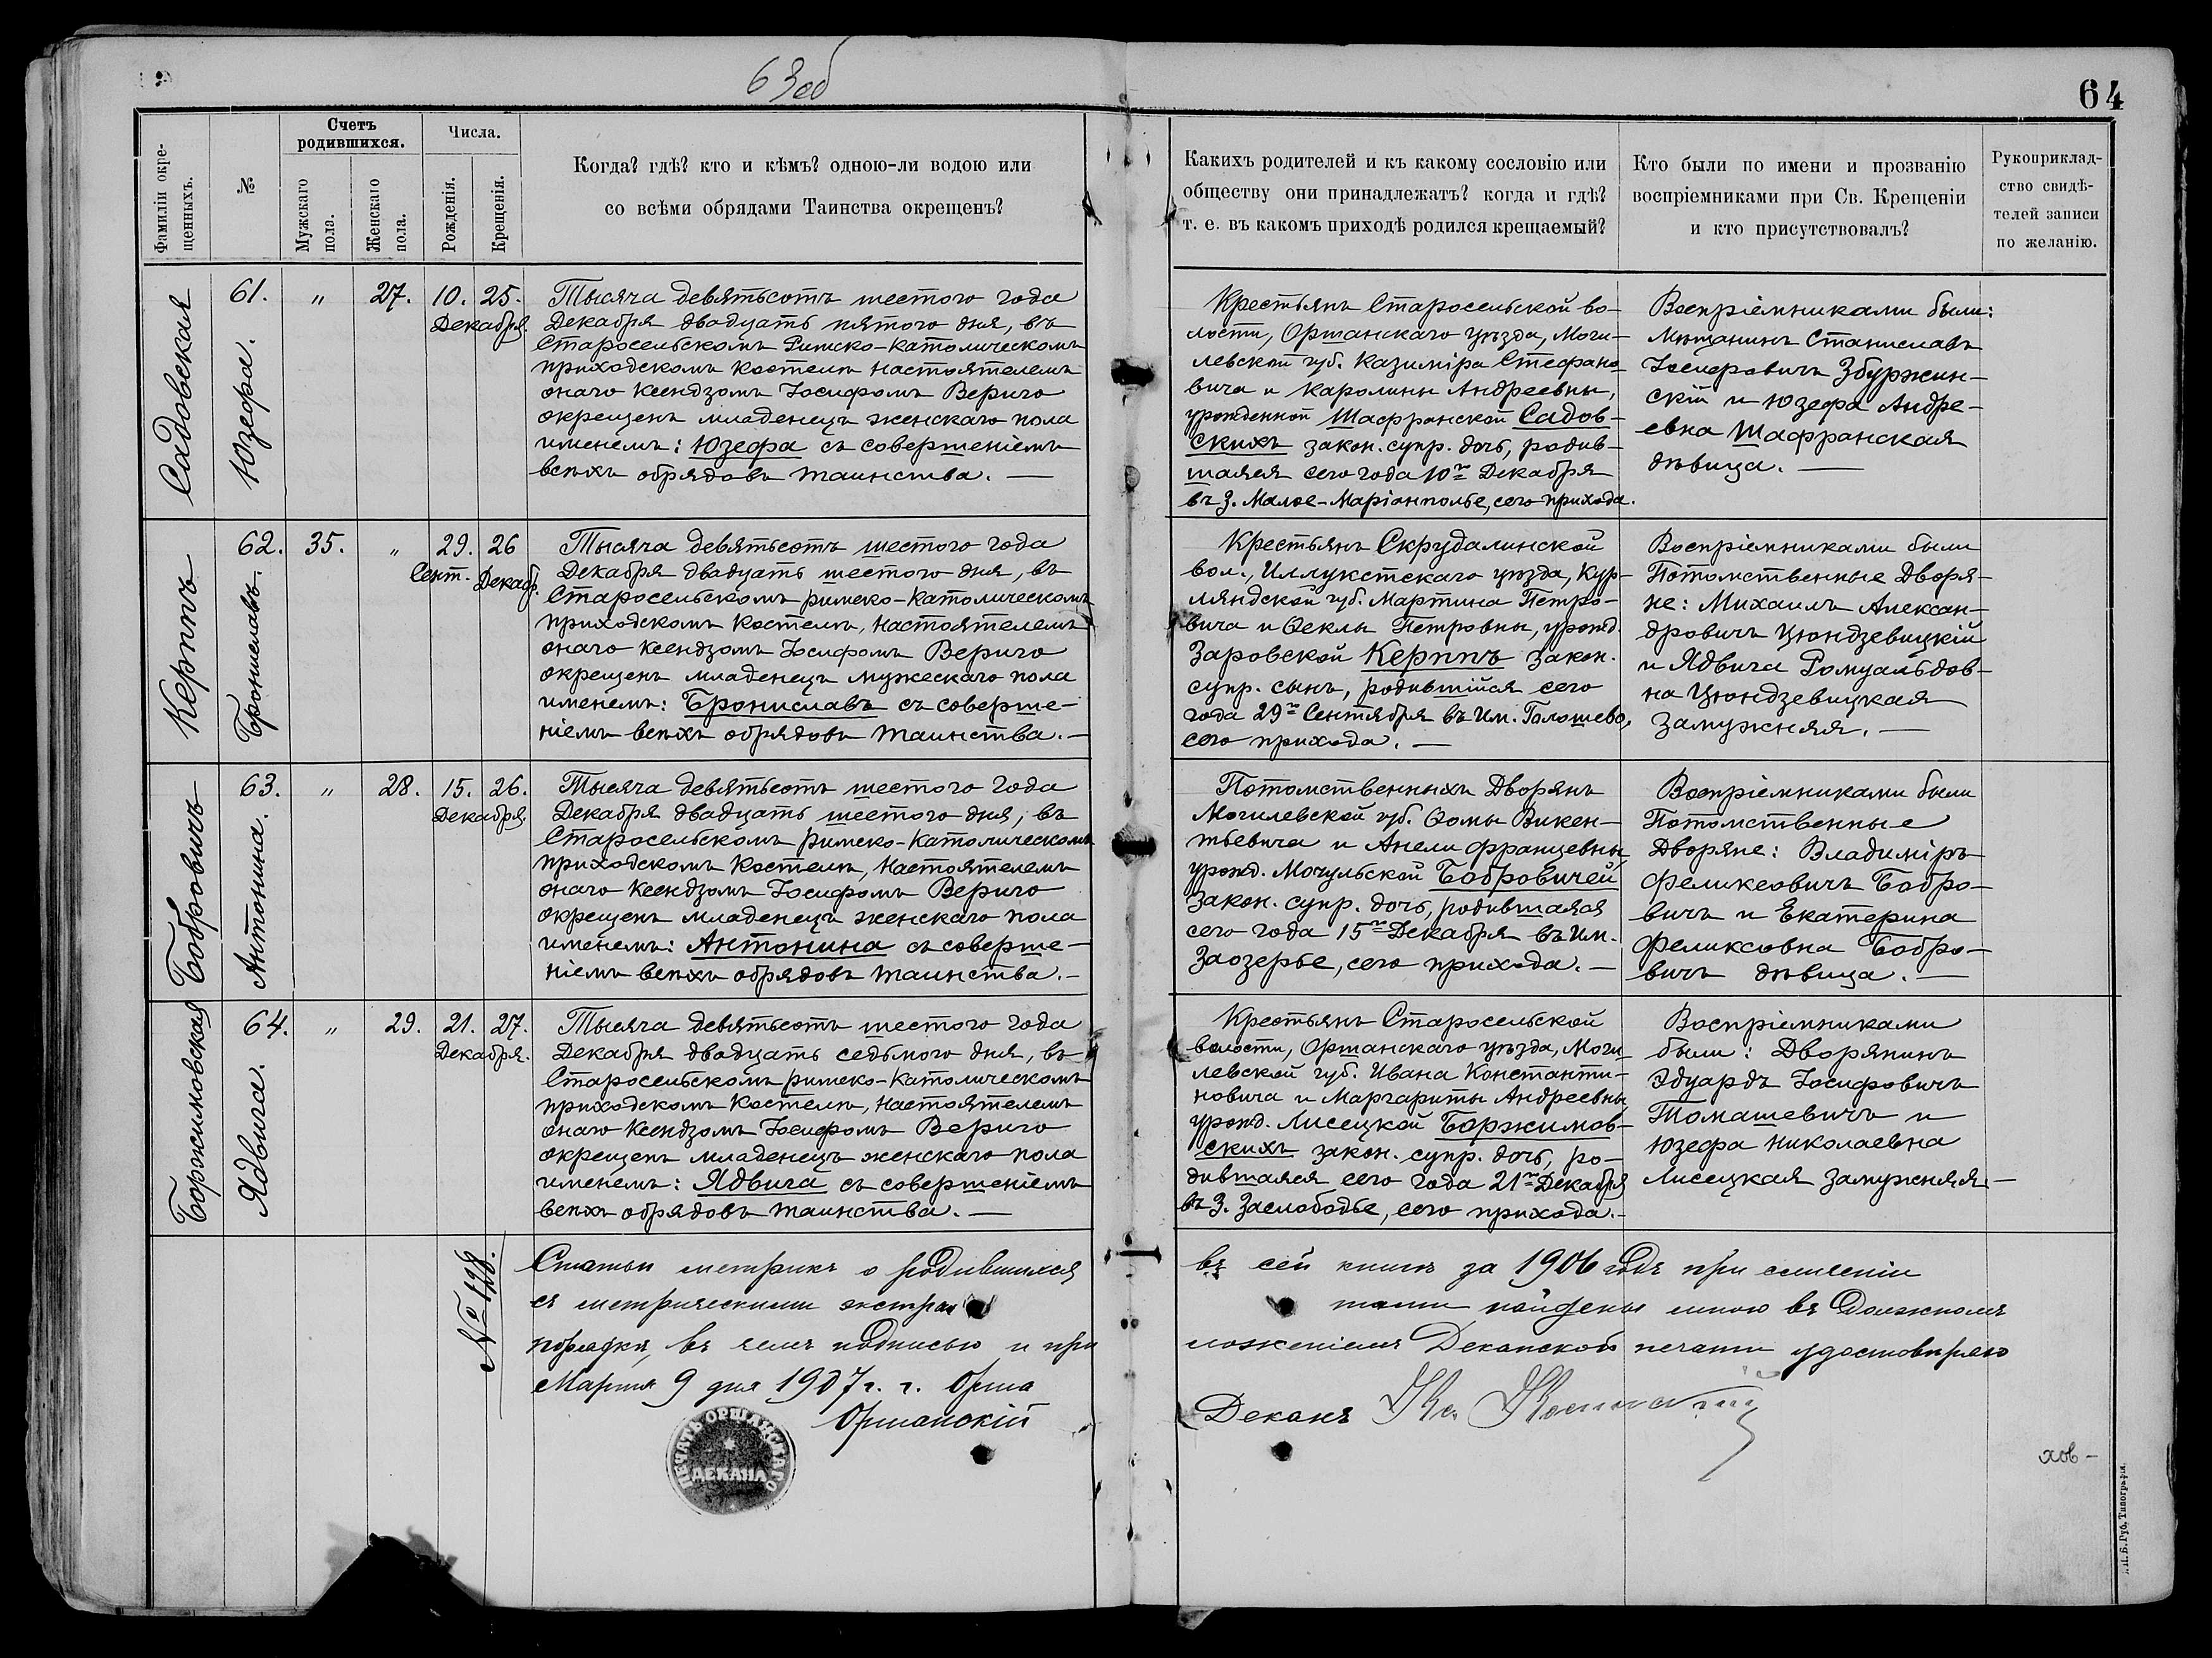 63об
64
Фамиліи окре-
щенныхъ.
№
Счетъ
родившихся.
Мужскаго
пола.
Женскаго
пола.
Числа.
Рожденія.
Крещенія.
Когда? гдѣ? кто и кѣмъ? одною-ли водою или
со всѣми обрядами Таинства окрещенъ?
Какихъ родителей и къ какому сословію или
обществу они принадлежатъ? когда и гдѣ?
т. е. въ какомъ приходѣ родился крещаемый?
Кто были по имени и прозванію
воспріемниками при Св. Крещеніи
и кто присутствовалъ?
Рукоприклад-
ство свидѣ-
телей записи
по желанію.
Садовская
Юзефа.
61.
"
27.
10. 25.
Декабря.
Тысяча девятьсотъ шестого года
Декабря двадцать пятого дня, въ
Старосельскомъ Римско-католическомъ
приходскомъ костелѣ настоятелемъ
онаго Ксендзомъ Іосифомъ Вериго
окрещенъ младенецъ женскаго пола
именемъ: Юзефа съ совершеніемъ
всѣхъ обрядовъ таинства. —
Крестьянъ Старосельской во-
лости, Оршанскаго уѣзда, Моги-
левской губ. Казиміра Стефано-
вича и Каролины Андреевны,
урожденной Шафранской Садов-
скихъ закон. супр. дочь, родив-
шаяся сего года 10го Декабря
въ З. Малое-Маріамполье, сего прихода.
Воспріемниками были:
Мѣщанинъ Станиславъ
Іосифовичъ Збуржин-
скій и Юзефа Андре-
евна Шафранская
дѣвица. —
Керппъ
Брониславъ.
62.
35.
"
29. 26
Сент. Декабр.
Тысяча девятьсотъ шестого года
Декабря двадцать шестого дня, въ
Старосельскомъ римско-католическомъ
приходскомъ костелѣ, настоятелемъ
онаго Ксендзомъ Іосифомъ Вериго
окрещенъ младенецъ мужескаго пола
именемъ: Брониславъ съ соверше-
ніемъ всѣхъ обрядовъ таинства. —
Крестьянъ Скрудалинской
вол., Иллукстскаго уѣзда, Кур-
ляндской губ. Мартина Петро-
вича и Ѳеклы Петровны, урожд.
Заровской Керппъ закон.
супр. сынъ, родившійся сего
года 29го Сентября въ Им. Голошево,
сего прихода. —
Воспріемниками были
Потомственные Дворя-
не: Михаилъ Алексан-
дровичъ Цюндзевицкій
и Ядвига Ромуальдов-
на Цюндзевицкая
замужняя. —
Бобровичъ
Антонина.
63.
"
28.
15. 26.
Декабря.
Тысяча девятьсотъ шестого года
Декабря двадцать шестого дня, въ
Старосельскомъ римско-католическомъ
приходскомъ костелѣ, настоятелемъ
онаго Ксендзомъ Іосифомъ Вериго
окрещенъ младенецъ женскаго пола
именемъ: Антонина съ соверше-
ніемъ всѣхъ обрядовъ таинства. —
Потомственныхъ Дворянъ
Могилевской губ. Ѳомы Викен-
тьевича и Анели Францевны
урожд. Мочульской Бобровичей
закон. супр. дочь, родившаяся
сего года 15го Декабря въ Им.
Заозерье, сего прихода. —
Воспріемниками были
Потомственные
Дворяне: Владиміръ
Феликсовичъ Бобро-
вичъ и Екатерина
Феликсовна Бобро-
вичъ дѣвица. —
Боржимовская
Ядвига.
64.
"
29.
21. 27.
Декабря.
Тысяча девятьсотъ шестого года
Декабря двадцать седьмого дня, въ
Старосельскомъ римско-католическомъ
приходскомъ костелѣ, настоятелемъ
онаго Ксендзомъ Іосифомъ Вериго
окрещенъ младенецъ женскаго пола
именемъ: Ядвига съ совершеніемъ
всѣхъ обрядовъ таинства. —
Крестьянъ Старосельской
волости, Оршанскаго уѣзда, Моги-
левской губ. Ивана Константи-
новича и Маргариты Андреевны
урожд. Лисецкой Боржимов-
скихъ закон. супр. дочь, ро-
дившаяся сего года 21го Декабря
въ З. Заслободье, сего прихода. —
Воспріемниками
были: Дворянинъ
Эдуардъ Іосифовичъ
Томашевичъ и
Юзефа Николаевна
Лисецкая замужняя. —
№ 128.
Статьи метрикъ о родившихся
въ сей книгѣ за 1906 годъ при сличеніи
съ метрическими экстрак
тами найдены мною въ должномъ
порядкѣ, въ чемъ подписью и при
ложеніемъ Деканской печати удостовѣряю
Марта 9 дня 1907 г. г. Орша
Оршанскій
Деканъ Кс.
ПЕЧАТЬ ОРШАНСКАГО
ДЕКАНА
хов-
Губ. Типографія.